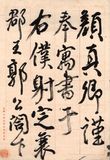 顏真卿謹
奉寓書于
右僕射定襄
郡王郭公閣下